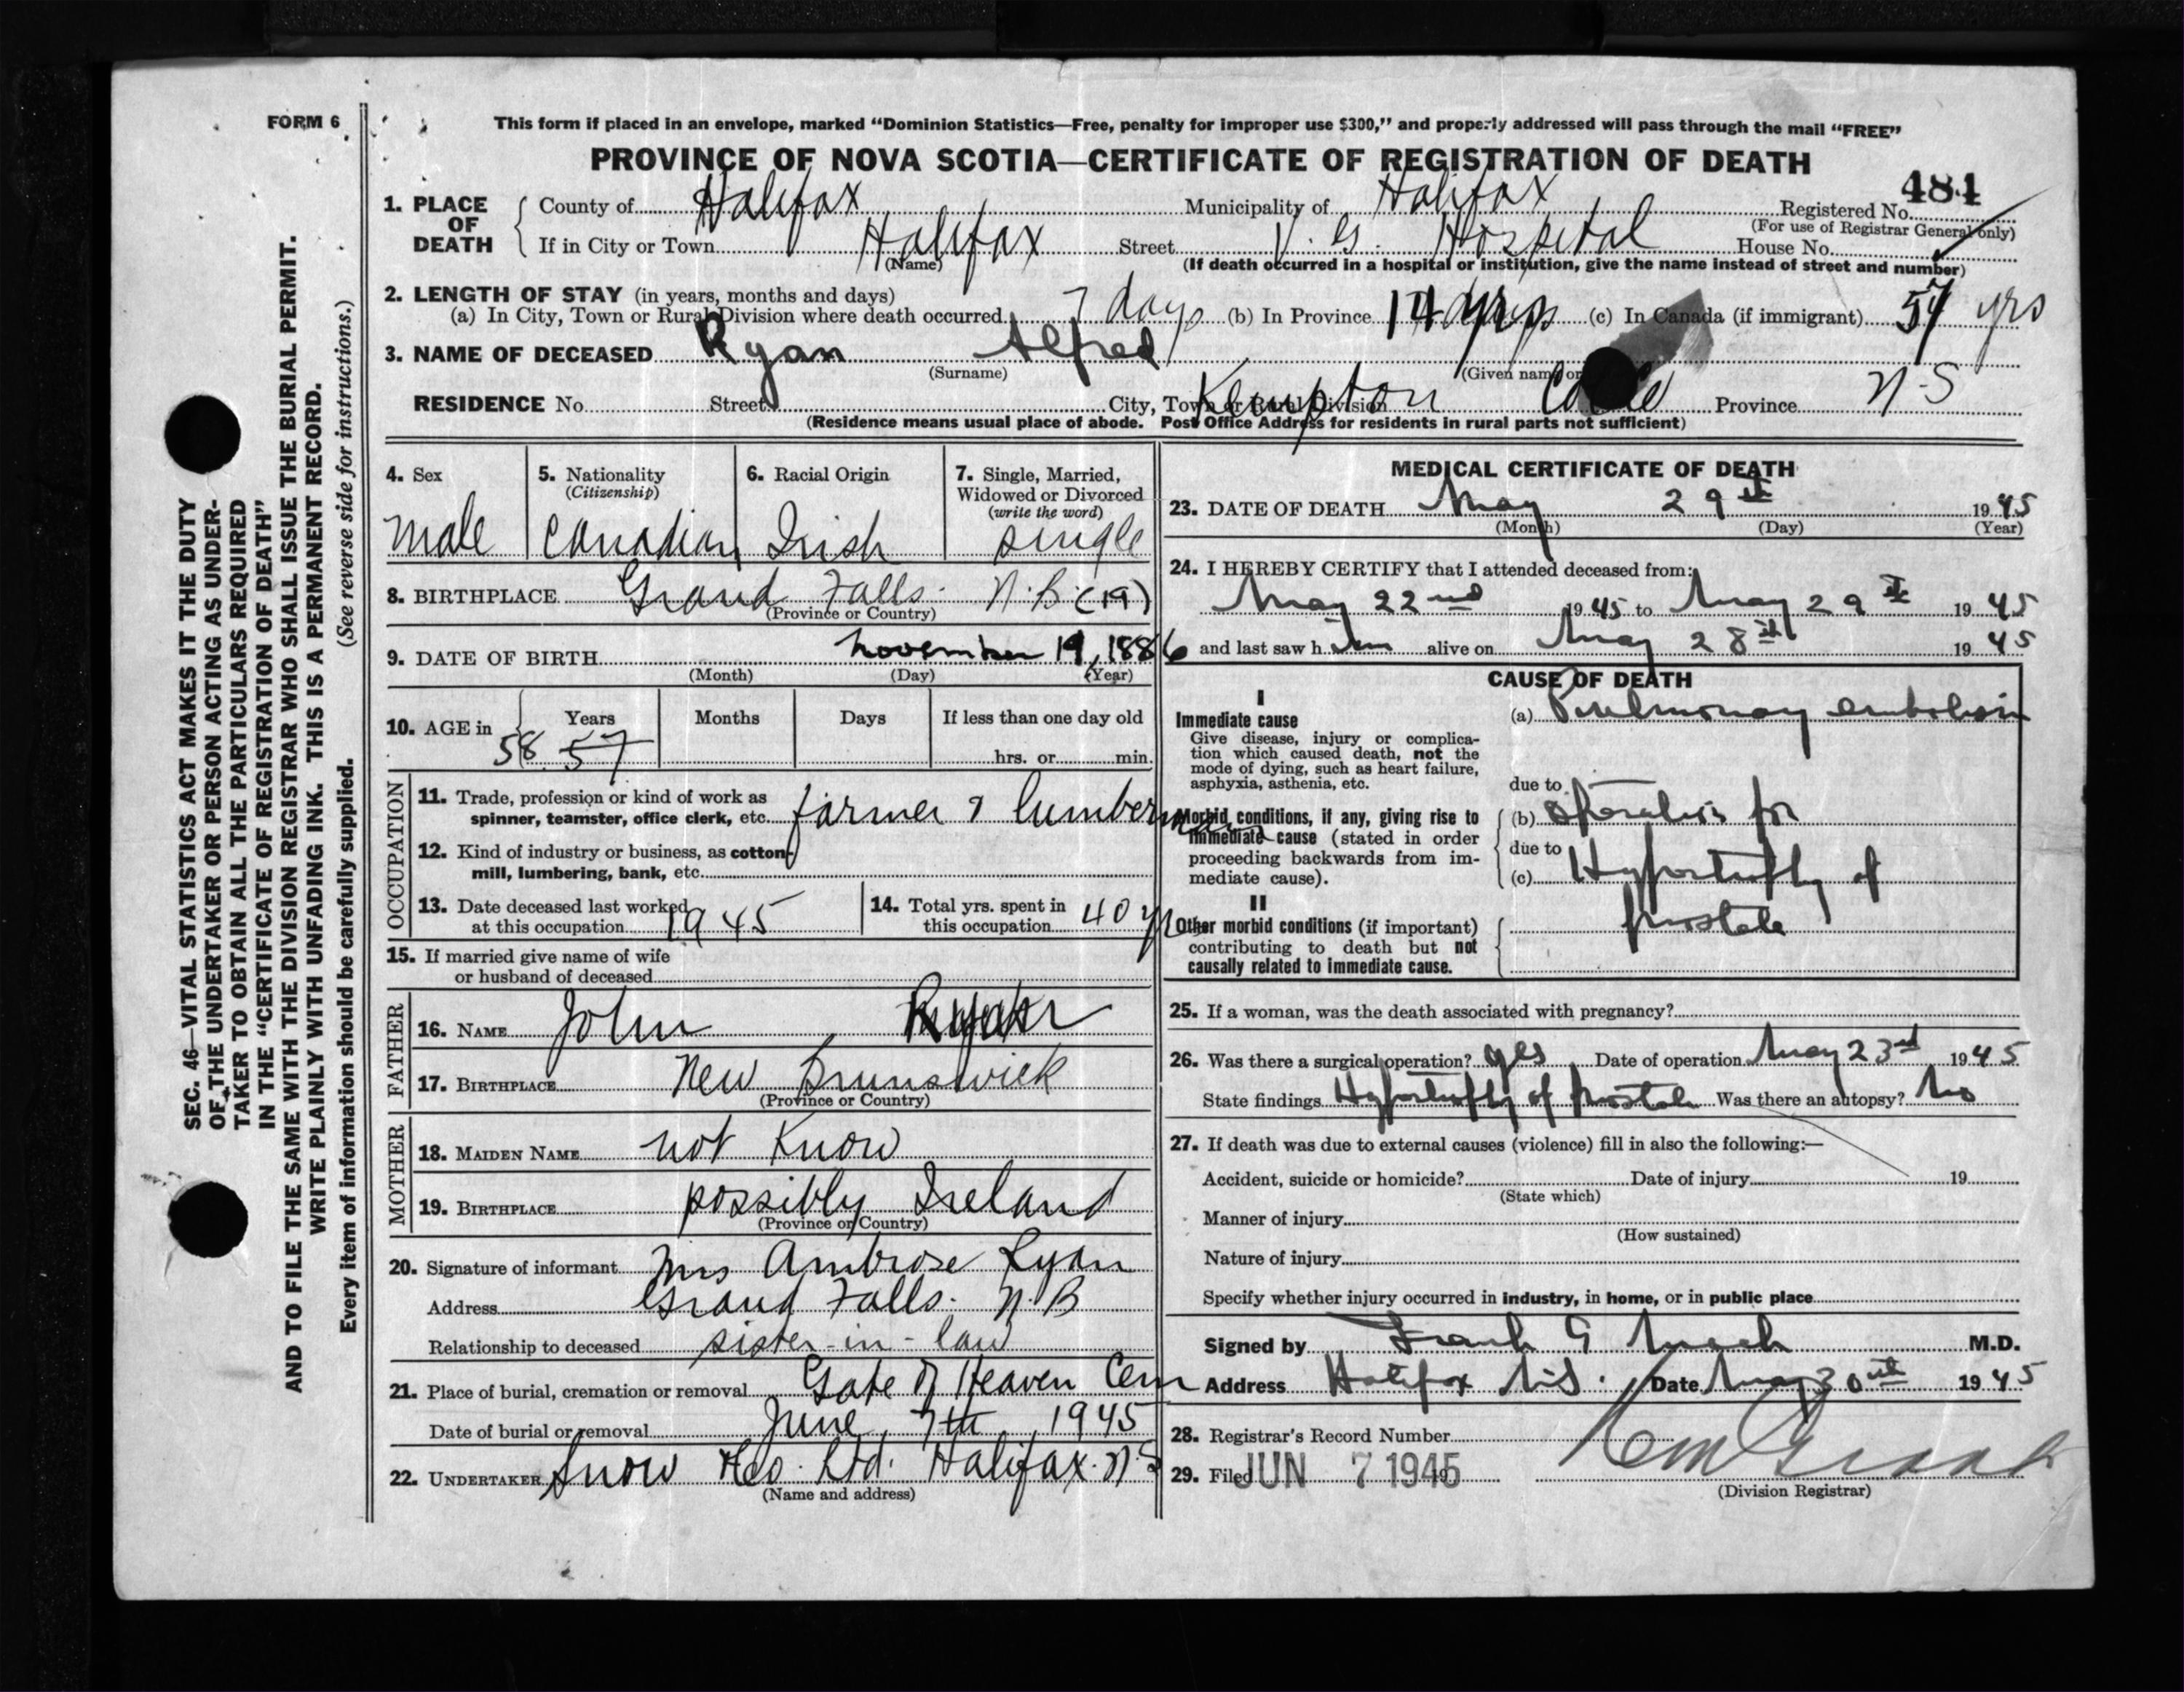 FORM 6
This form if placed in an envelope, marked “Dominion Statistics—Free, penalty for improper use $300,” and properly addressed will pass through the mail “FREE”
PROVINCE OF NOVA SCOTIA—CERTIFICATE OF REGISTRATION OF DEATH
484
1. PLACE OF DEATH
County of Halifax Municipality of Halifax Registered No.
(For use of Registrar General only)
If in City or Town Halifax Street V. G. Hospital House No.
(Name)
(If death occurred in a hospital or institution, give the name instead of street and number)
2. LENGTH OF STAY (in years, months and days)
(a) In City, Town or Rural Division where death occurred 7 days (b) In Province 14 (c) In Canada (if immigrant) 57 yrs
3. NAME OF DECEASED Ryan Alfred
(Surname) (Given name or
RESIDENCE No. Street City, Town or Rural Division Kempton Province N-S
(Residence means usual place of abode. Post Office Address for residents in rural parts not sufficient)
4. Sex
male
5. Nationality
(Citizenship)
Canadian
6. Racial Origin
Irish
7. Single, Married,
Widowed or Divorced
(write the word)
single
8. BIRTHPLACE Grand Falls. N.B. (19)
(Province or Country)
9. DATE OF BIRTH November 19, 1886
(Month) (Day) (Year)
10. AGE in
Years Months Days If less than one day old
58 57 hrs. or min.
OCCUPATION
11. Trade, profession or kind of work as
spinner, teamster, office clerk, etc. farmer & lumberman
12. Kind of industry or business, as cotton-
mill, lumbering, bank, etc.
13. Date deceased last worked
at this occupation 1945
14. Total yrs. spent in
this occupation 40 yr
15. If married give name of wife
or husband of deceased
FATHER
16. NAME John Ryan
17. BIRTHPLACE New Brunswick
(Province or Country)
MOTHER
18. MAIDEN NAME not Know
19. BIRTHPLACE possibly Ireland
(Province or Country)
20. Signature of informant Mrs Ambrose Ryan
Address Grand Falls. N.B
Relationship to deceased sister-in-law
21. Place of burial, cremation or removal Gate of Heaven Cem
Date of burial or removal June 7th, 1945
22. UNDERTAKER Snow & Co. Ltd. Halifax. N.S
(Name and address)
MEDICAL CERTIFICATE OF DEATH
23. DATE OF DEATH May 29th 1945
(Month) (Day) (Year)
24. I HEREBY CERTIFY that I attended deceased from:
May 22nd 1945 to May 29th 1945
and last saw him alive on May 28th 1945
CAUSE OF DEATH
I
Immediate cause
Give disease, injury or complica-
tion which caused death, not the
mode of dying, such as heart failure,
asphyxia, asthenia, etc.
(a) Pulmonary embolism
due to
Morbid conditions, if any, giving rise to
immediate cause (stated in order
proceeding backwards from im-
mediate cause).
(b) Operation for
due to
(c) Hypertrophy of
prostate
II
Other morbid conditions (if important)
contributing to death but not
causally related to immediate cause.
25. If a woman, was the death associated with pregnancy?
26. Was there a surgical operation? yes Date of operation May 23rd 1945
State findings Hypertrophy of prostate Was there an autopsy? No
27. If death was due to external causes (violence) fill in also the following:—
Accident, suicide or homicide? Date of injury 19
(State which)
Manner of injury
(How sustained)
Nature of injury
Specify whether injury occurred in industry, in home, or in public place
Signed by Frank G Mack M.D.
Address Halifax N.S. Date May 30th 1945
28. Registrar's Record Number
29. Filed JUN 7 1945
(Division Registrar)
SEC. 46—VITAL STATISTICS ACT MAKES IT THE DUTY
OF THE UNDERTAKER OR PERSON ACTING AS UNDER-
TAKER TO OBTAIN ALL THE PARTICULARS REQUIRED
IN THE “CERTIFICATE OF REGISTRATION OF DEATH”
AND TO FILE THE SAME WITH THE DIVISION REGISTRAR WHO SHALL ISSUE THE BURIAL PERMIT.
WRITE PLAINLY WITH UNFADING INK. THIS IS A PERMANENT RECORD.
Every item of information should be carefully supplied. (See reverse side for instructions.)